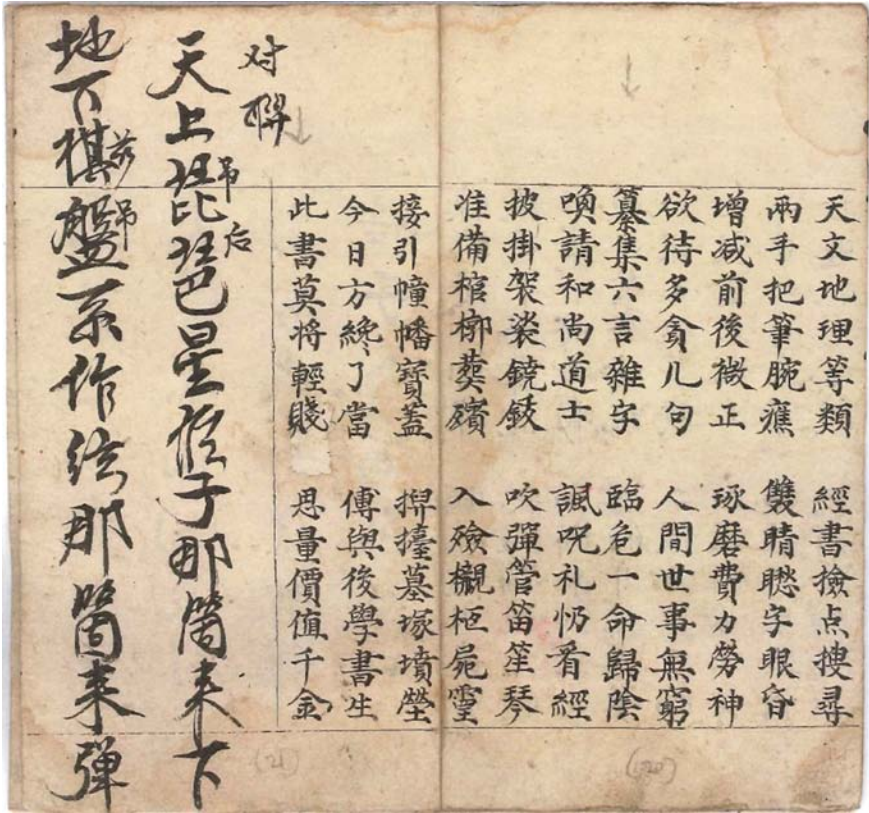 天文地理等類 經書撿点搜尋
兩手把筆腕癄 雙睛瞇字眼昏
增减前後微正 琢磨費力勞神
欲待多貪几句 人間世事無窮
纂集六言雜字 臨危一命歸陰
喚請和尚道士 諷呪礼懺看經
披掛袈裟鐃鈸 吹彈管笛笙琴
准備棺槨葬殯 入殮櫬柩屍靈
接引幢幡寶蓋 擡墓塚墳塋
今日方纔了當 傳與後學書生
此書莫將輕賤 思量價值千金
对聯
天上琵琶星 子那箇来下
吊后
地下棋盤 作 那箇来弹
吊
(20)
(21)